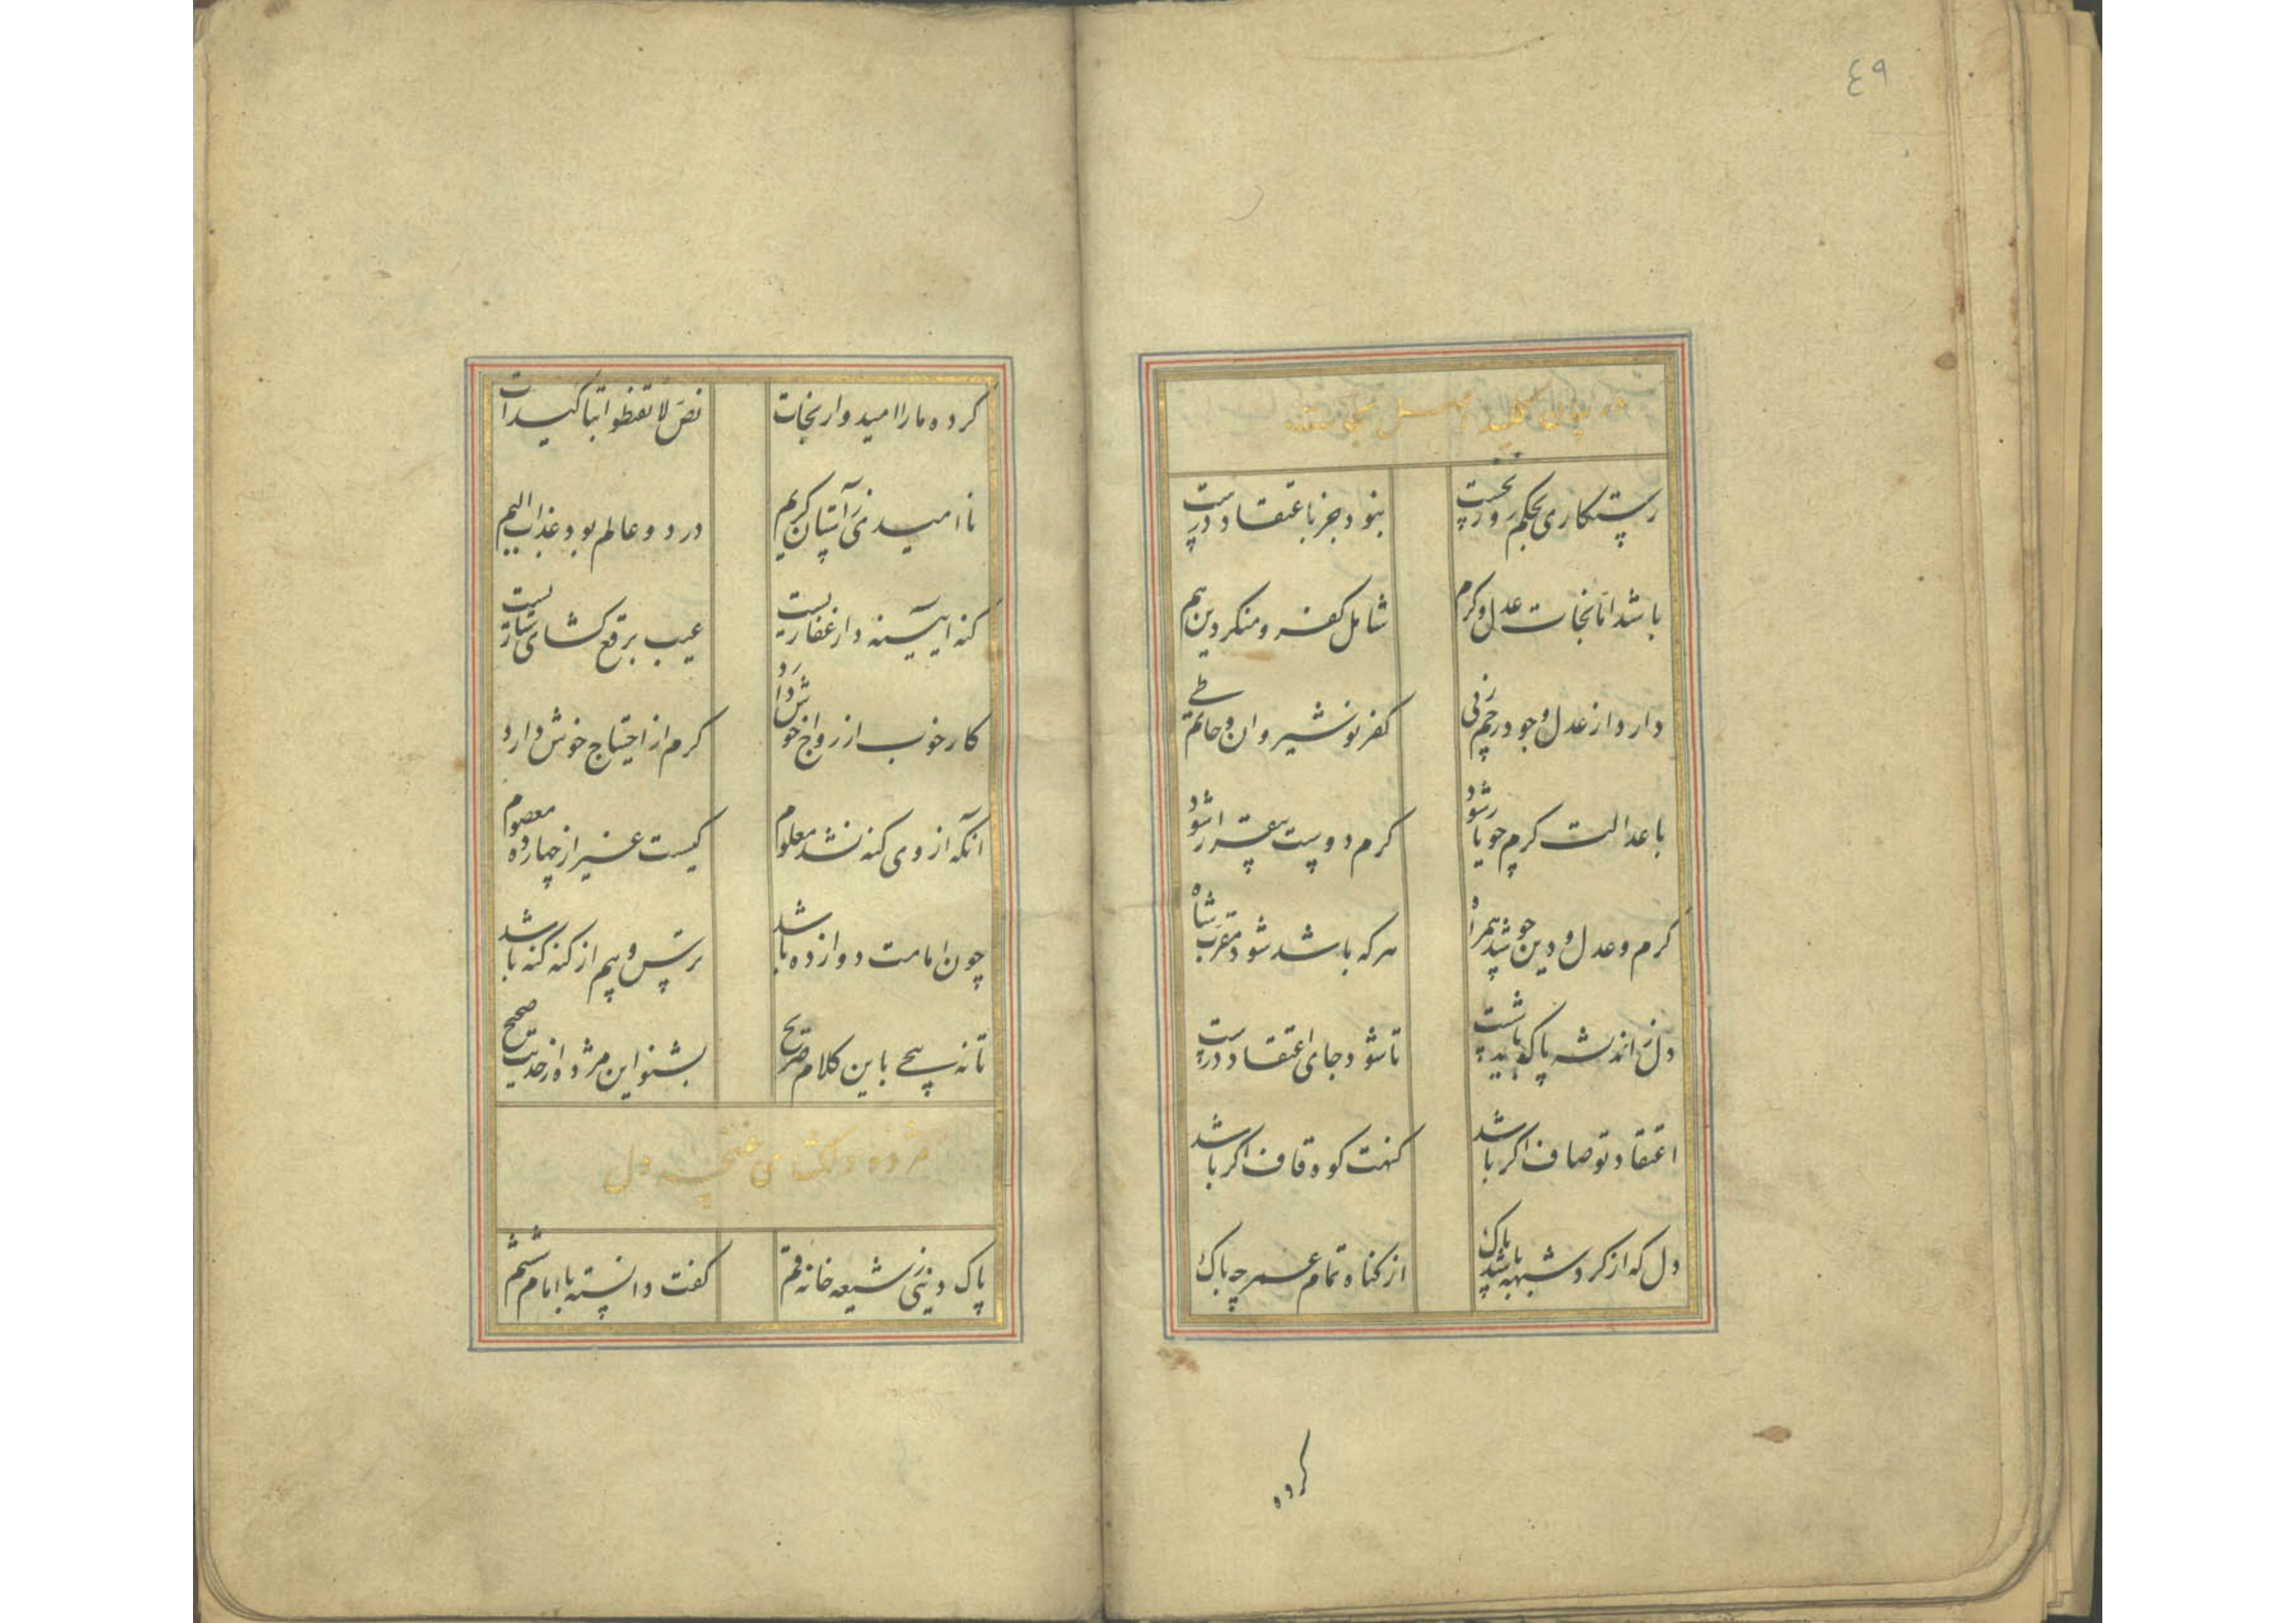 ٤٩
در بیان کلید
رستکاری بحکم روز نخست نبود جز باعتقاد درست
باشد اما نجات عدل و کرم شامل کفر و منکر دین هم
دارد از عدل و جود رحم زنی کفر نوشیروان و حاتم طی
با عدالت کرم جو یار شود کرم دوست بیقرار شود
کرم و عدل و دین جو شد همراه هر که باشد شود مقرب شاه
دل ز اندیشه پاک باید شست تا شود جای اعتقاد درست
اعتقاد تو صاف اکر باشد کنهت کوه قاف اکر باشد
دل که از کرد شبهه باشد پاک از کناه تمام عمر چه باک
کرده
کرده ما را امیدوار نجات نص لا تقنطوا بتاکیدات
ناامیدی ز آستان کریم در دو عالم بود عذاب الیم
کنه آیینه دار غفاریست عیب برقع کشای ستاریست
کار خوب از رواج خوش دارد کرم از احتیاج خوش دارد
آنکه از وی کنه نشد معلوم کیست غیر از چهارده معصوم
چون امامت دوازده باشد ترس و بیم از کنه کنه باشد
تا نه پیچی باین کلام صریح بشنو این مژده از حدیث صحیح
مژده دلکشای غنچه دل
پاک دینی ز شیعه خانه قم کفت دانسته با امام ششم